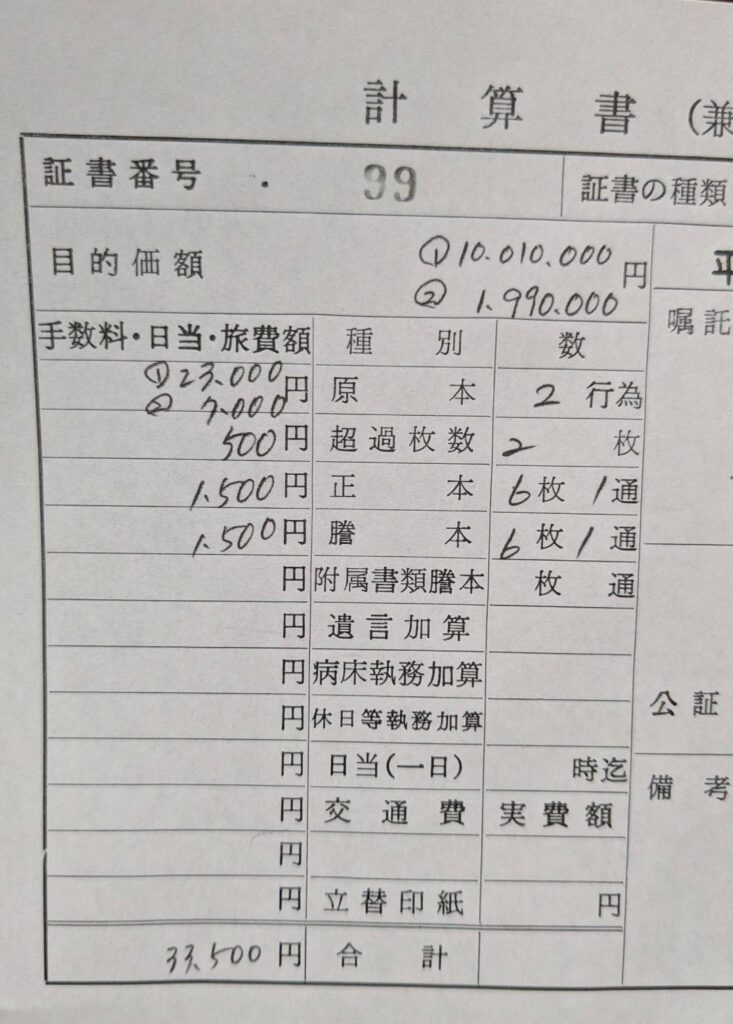 計算書(兼
証書番号 . 99 証書の種類
目的価額 ①10.010.000円
② 1.990.000
嘱託
手数料・日当・旅費額 種別 数
①23.000円 原本 2行為
② 7.000
500円 超過枚数 2枚
1.500円 正本 6枚1通
1.500円 謄本 6枚1通
円 附属書類謄本 枚通
円 遺言加算
円 病床執務加算
公証
円 休日等執務加算
円 日当(一日) 時迄
備考
円 交通費 実費額
円
円 立替印紙 円
33.500円 合計